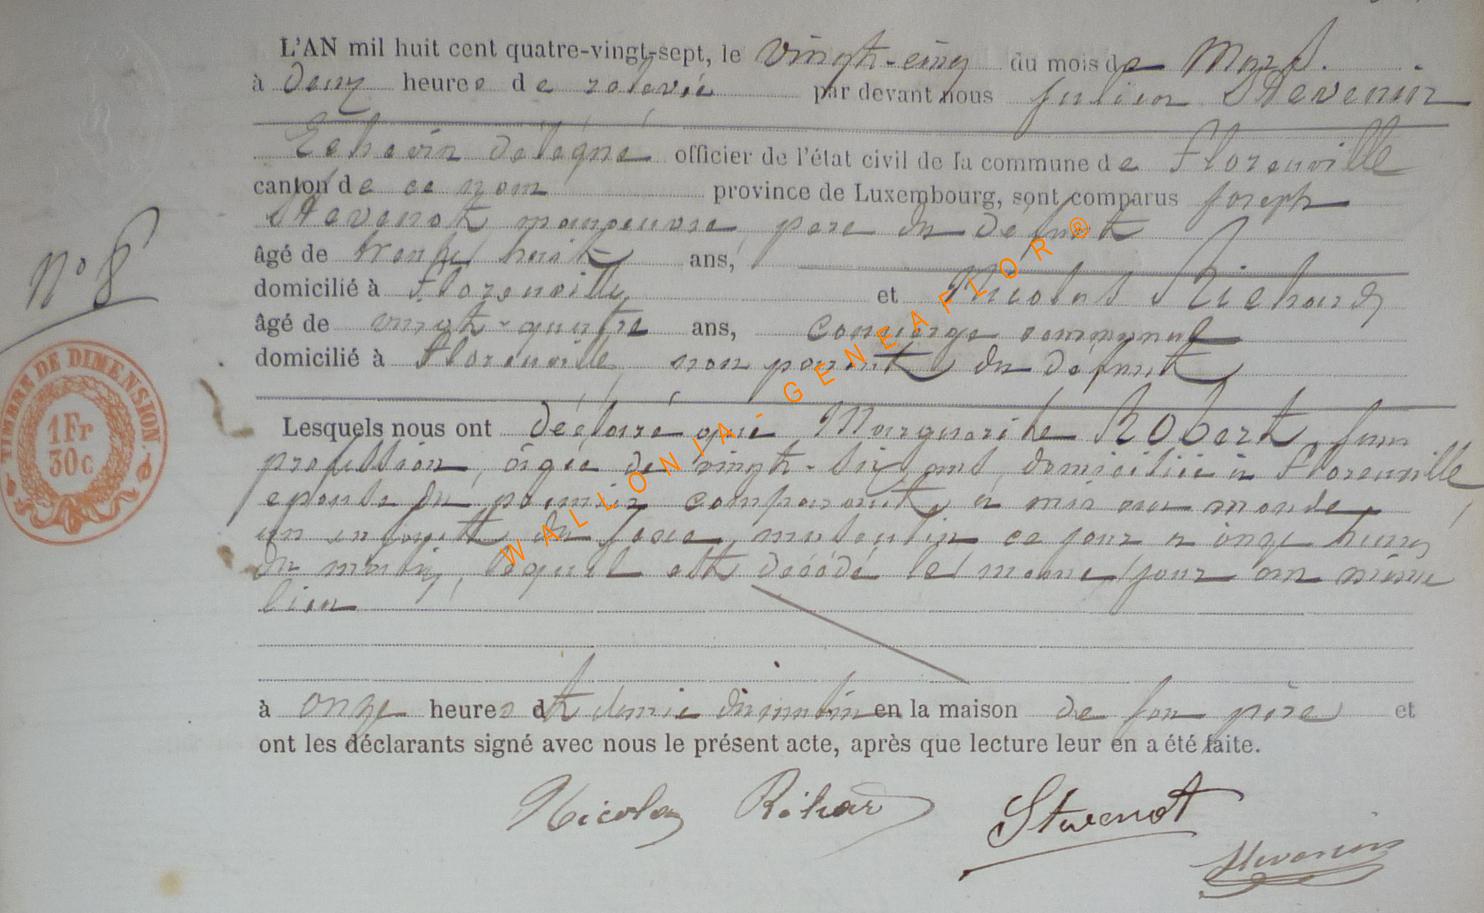 L'AN mil huit cent quatre-vingt-sept, le vingt-cinq du mois de Mars.
à deux heures de relevée par devant nous Julien Stevenin
Echevin délégué officier de l'état civil de la commune de Florenville
canton de ce nom province de Luxembourg, sont comparus Joseph
Stevenot manoeuvre, père du défunt
âgé de trente huit ans,
domicilié à Florenville et Nicolas Richard
âgé de vingt-quatre ans, concierge communal
domicilié à Florenville, non parent du défunt
N° 8
TIMBRE DE DIMENSION.
1Fr
30c
Lesquels nous ont déclaré que Marguerite Robert, sans
profession, âgée de vingt-six ans, domiciliée à Florenville,
epouse du premier comparant à mis au monde
un enfant du sexe masculin ce jour à onze heures
du matin, lequel est décédé le meme jour au même
lieu
à onze heures et demie du matin en la maison de son père et
ont les déclarants signé avec nous le présent acte, après que lecture leur en a été faite.
Nicolas Richard Stevenot
Stevenin
WALLONIA - GENEAFLOR ®